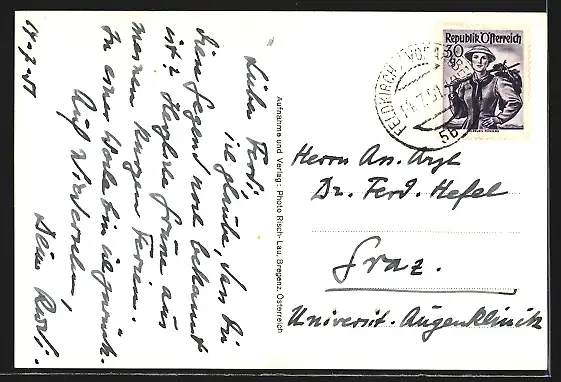 14-7-51
Lieber Ferdi!
ich glaube, den Dir
die Gegend noch bekannt
ist? Herzliche Grüße aus
meinen kurzen Ferien.
In einer Woche bin ich zurück.
Auf Wiedersehen,
Deine
Aufnahme und Verlag: Photo Risch-Lau, Bregenz, Österreich
Republik Österreich
30
FELDKIRCH
5b
Herrn An. Arzt
Dr. Ferd. Hefel
Graz.
Universit. Augenklinik